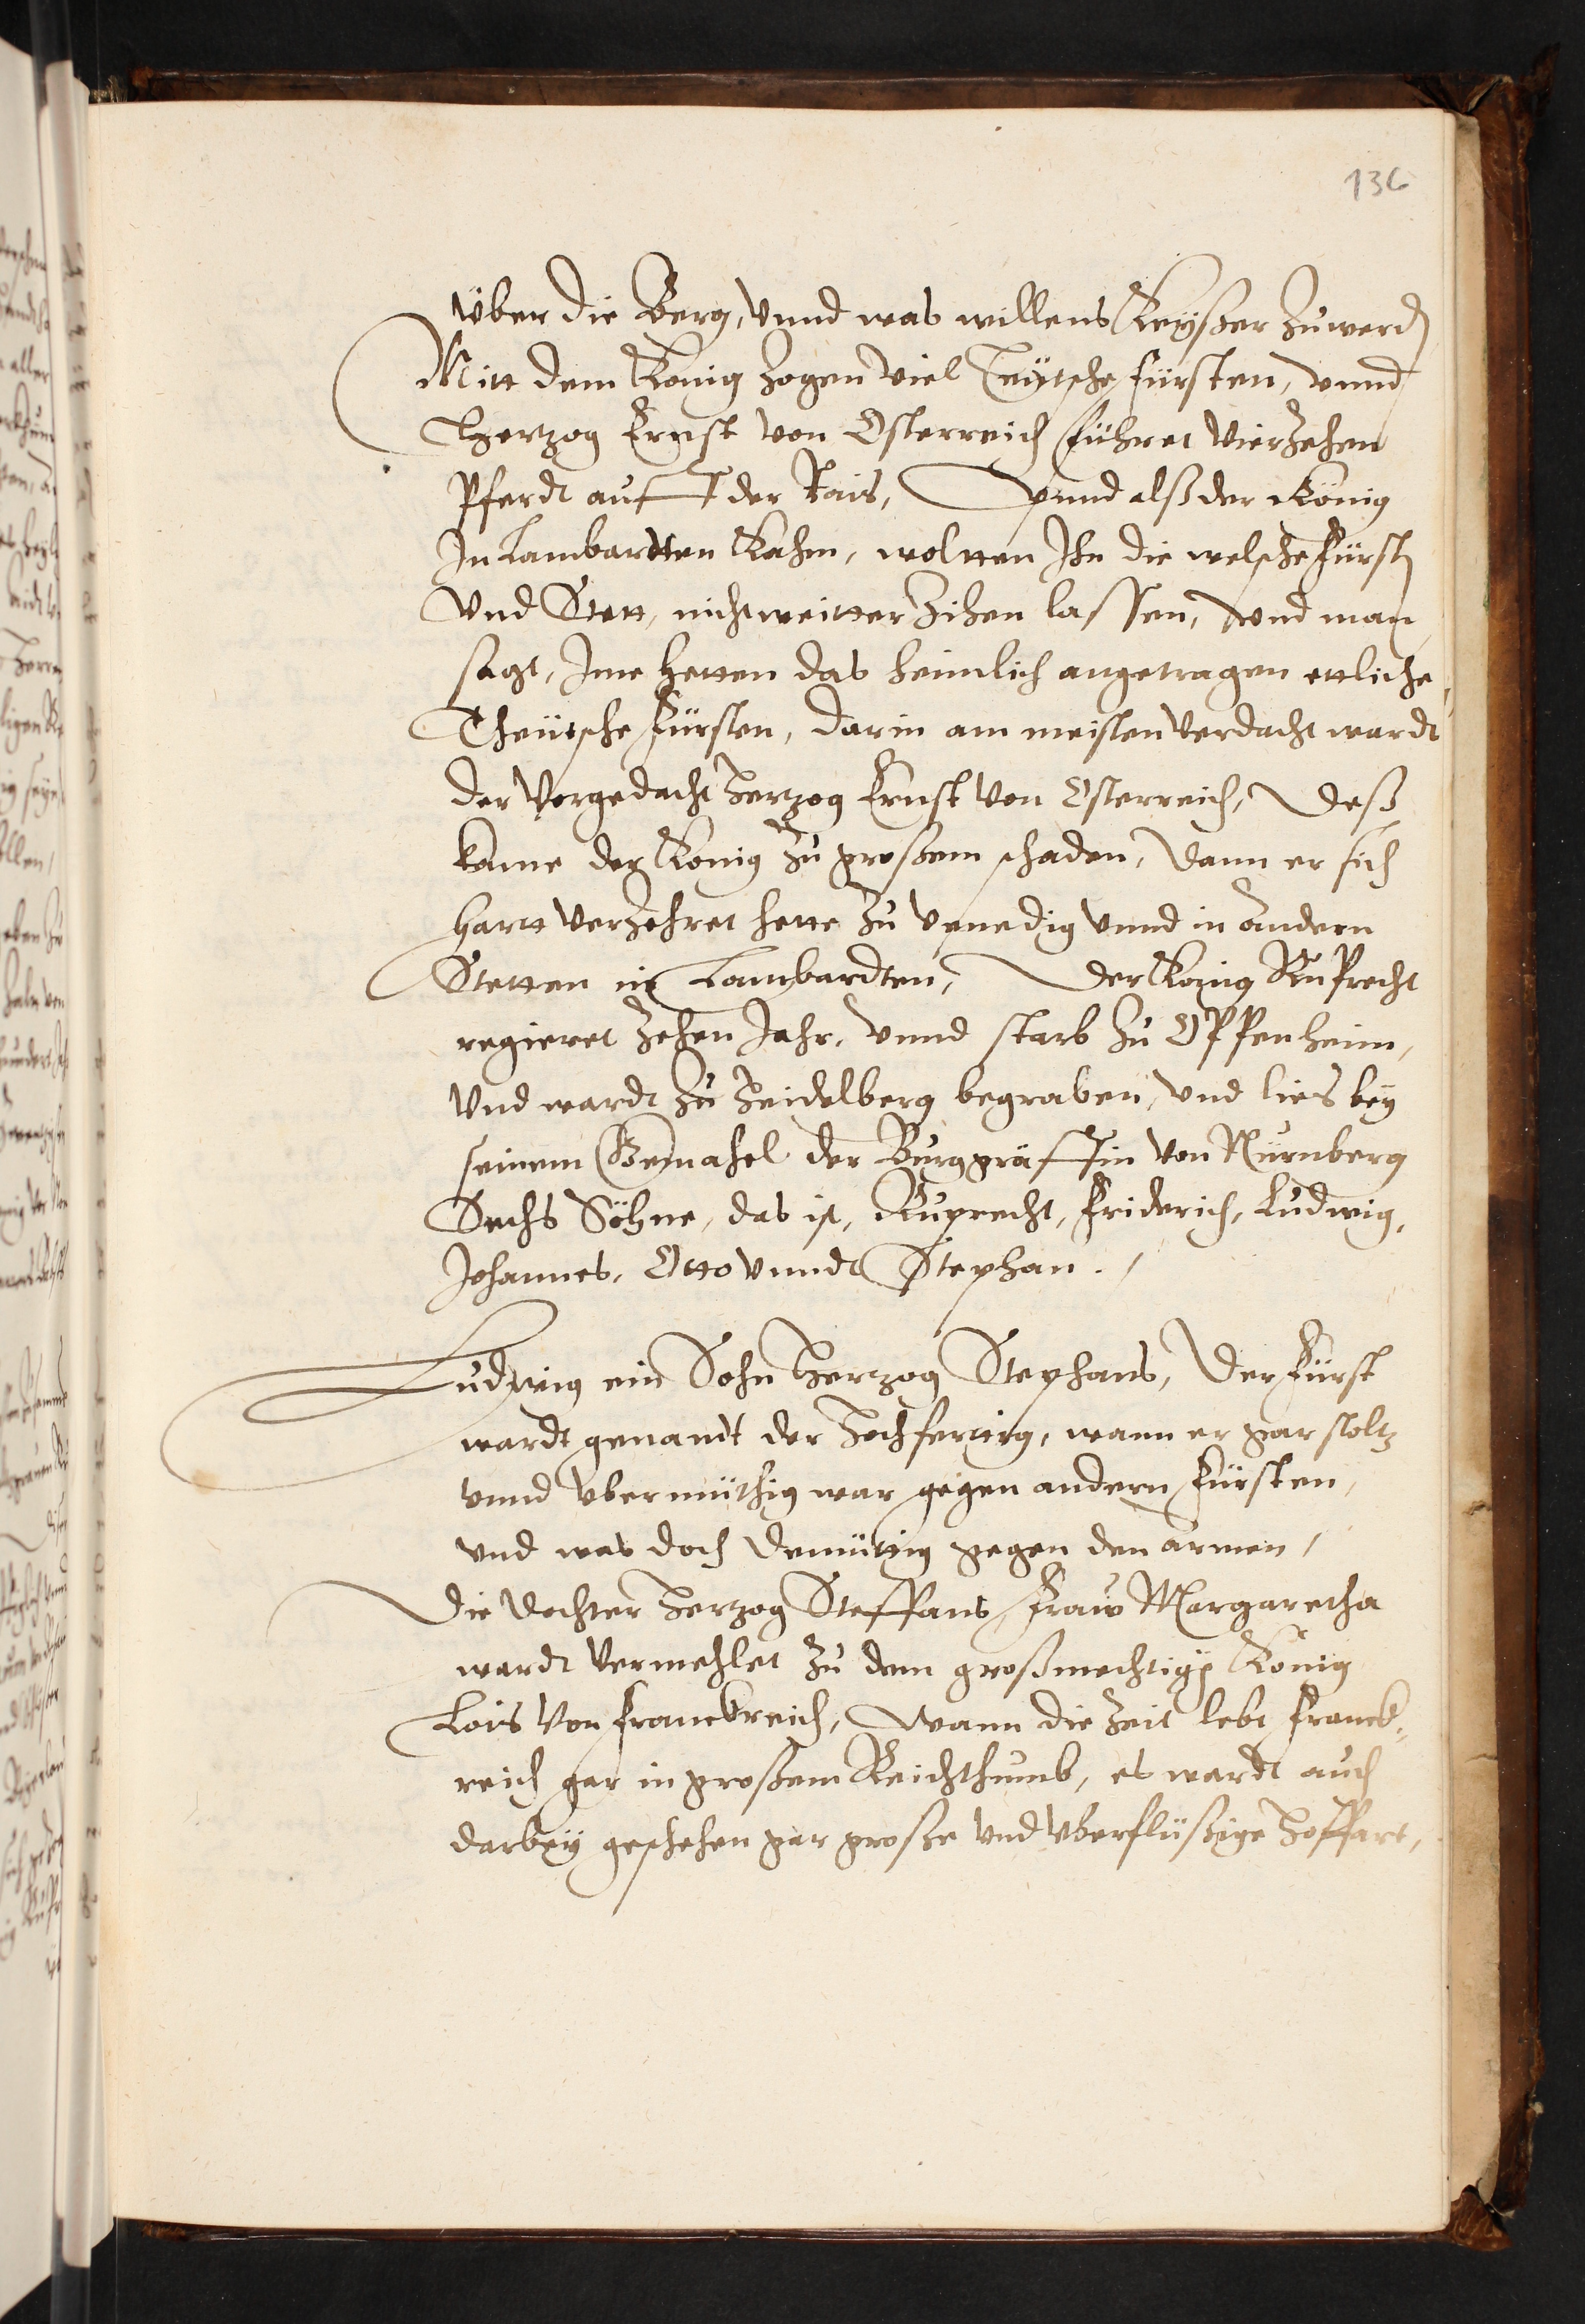 136
Vber die Berg, vnnd was willens Keyßer zuwerd
Mitt dem König zogen viel Teütsche Fürsten, vnnd
Herzog Ernst von Österreich führet vierzehen
Pferdt auff der Rais, Vnnd alß der König
In Lambardten Kahm, woltten Ihn die welsche Fürst
Vnd Stett, nicht weitter Zihen lassen, Vnd man
sagt, Jme hetten das heimlich angetragen ettliche
Theütsche Fürsten, darin am meisten verdacht wardt
der Vorgedacht Herzog Ernst von Österreich, Deß
kame der König zu großem schaden, Dann er sich
hartt verzehret hette zu Venedig vnnd in andern
Stetten in Lambardten, Der König Ruprecht
regieret zehen Jahr, vnnd starb zu Oppenheim,
Vnd wardt zu Heidelberg begraben, vnd lies bey
seinem Gemahel der Burggräffin von Nürnberg
Sechs Söhne, das ist, Ruprecht, Friderich, Ludwig,
Johannes, Otto vnndt Stephan.
Ludwig ein Sohn Herzog Stephans, Der Fürst
wardt genandt der Hochfertig, wann er gar stoltz
vnnd vbermüthig war gegen andern Fürsten,
vnd was doch demüttig gegen den armen,
Die Dochter Herzog Steffans Fraw Margaretha
wardt vermehlet zu dem großmechtigen König
Lois von Franckreich, Wann die Zeit lebt Franck-
reich gar in großem Reichthumb, es wardt auch
darbey geschehen gar große vnd vberflüßige Hoffart,